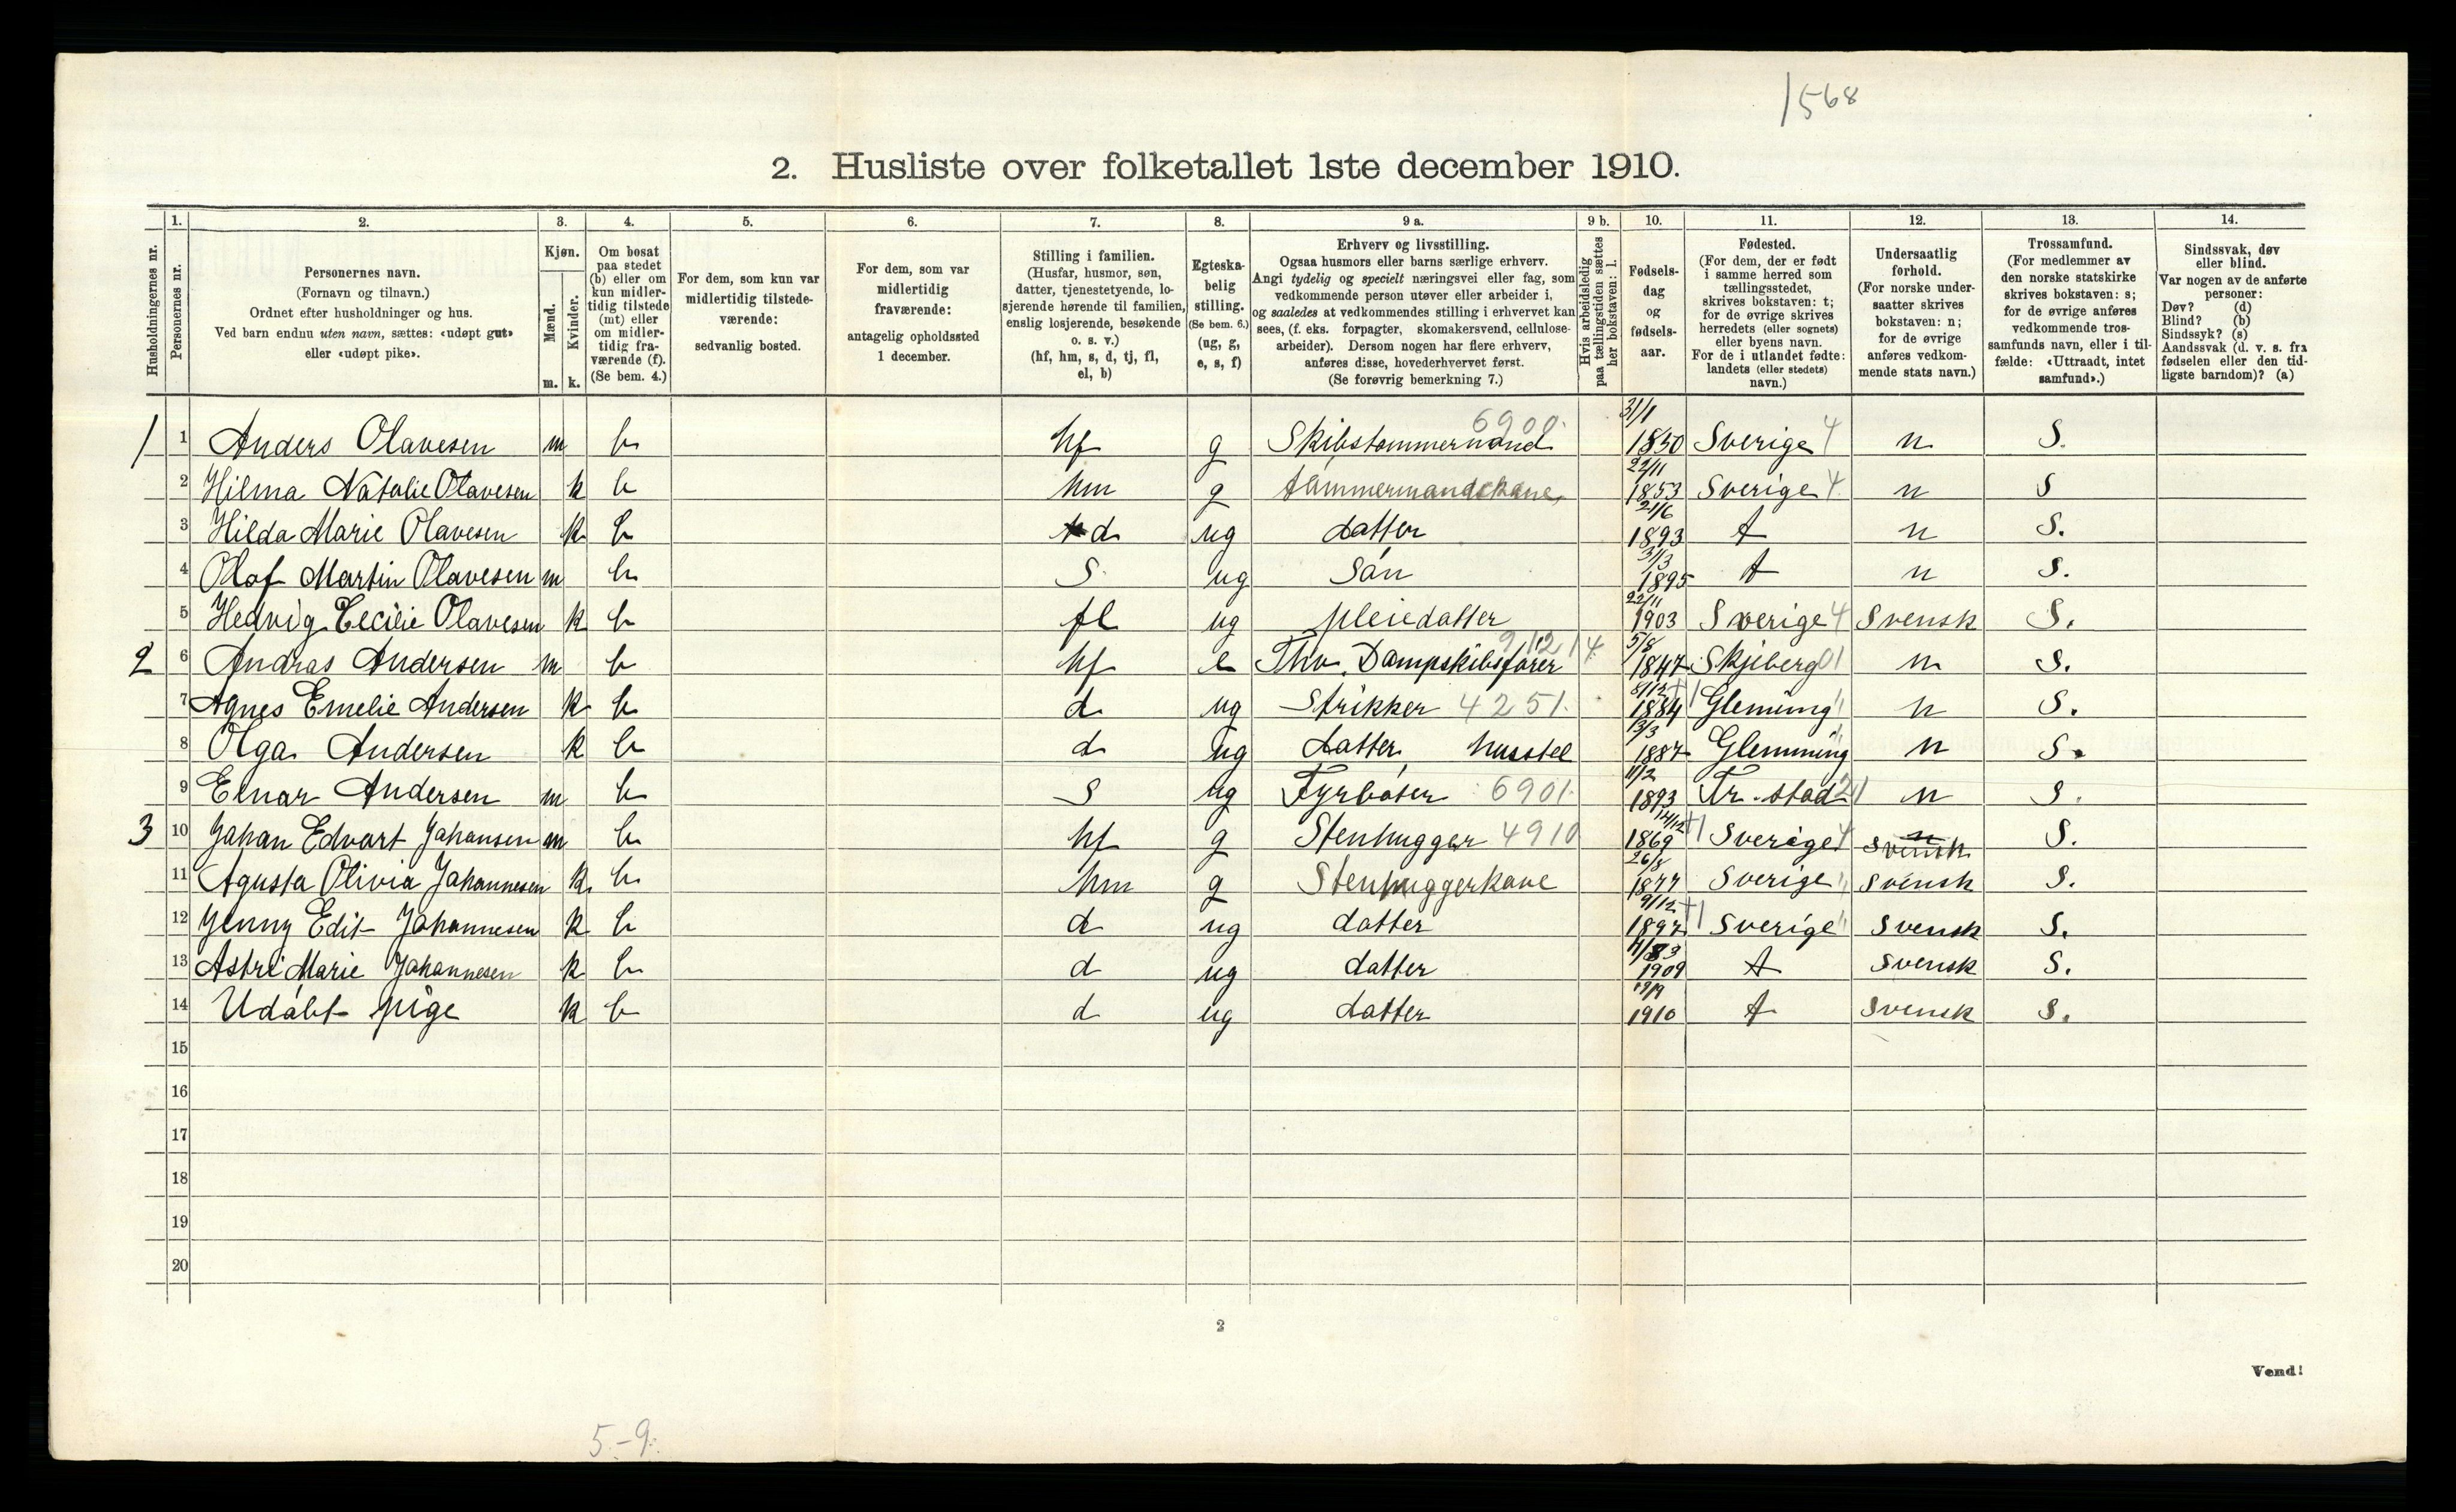 1568
2. Husliste over folketallet 1ste december 1910.
1. 2. 3. 4. 5. 6. 7. 8. 9 a. 9 b. 10. 11. 12. 13. 14.
Husholdningernes nr.
Personernes nr.
Personernes navn.
(Fornavn og tilnavn.)
Ordnet efter husholdninger og hus.
Ved barn endnu uten navn, sættes: «udøpt gut»
eller «udøpt pike».
Kjøn.
Mænd.
Kvinder.
m. k.
Om bosat
paa stedet
(b) eller om
kun midler-
tidig tilstede
(mt) eller
om midler-
tidig fra-
værende (f).
(Se bem. 4.)
For dem, som kun var
midlertidig tilstede-
værende:
sedvanlig bosted.
For dem, som var
midlertidig
fraværende:
antagelig opholdssted
1 december.
Stilling i familien.
(Husfar, husmor, søn,
datter, tjenestetyende, lo-
sjerende hørende til familien,
enslig losjerende, besøkende
o. s. v.)
(hf, hm, s, d, tj, fl,
el, b)
Egteska-
belig
stilling.
(Se bem. 6.)
(ug, g,
e, s, f)
Erhverv og livsstilling.
Ogsaa husmors eller barns særlige erhverv.
Angi tydelig og specielt næringsvei eller fag, som
vedkommende person utøver eller arbeider i,
og saaledes at vedkommendes stilling i erhvervet kan
sees, (f. eks. forpagter, skomakersvend, cellulose-
arbeider). Dersom nogen har flere erhverv,
anføres disse, hovederhvervet først.
(Se forøvrig bemerkning 7.)
Hvis arbeidsledig
paa tællingstiden sættes
her bokstaven: l.
Fødsels-
dag
og
fødsels-
aar.
Fødested.
(For dem, der er født
i samme herred som
tællingsstedet,
skrives bokstaven: t;
for de øvrige skrives
herredets (eller sognets)
eller byens navn.
For de i utlandet fødte:
landets (eller stedets)
navn.)
Undersaatlig
forhold.
(For norske under-
saatter skrives
bokstaven: n;
for de øvrige
anføres vedkom-
mende stats navn.)
Trossamfund.
(For medlemmer av
den norske statskirke
skrives bokstaven: s;
for de øvrige anføres
vedkommende tros-
samfunds navn, eller i til-
fælde: «Uttraadt, intet
samfund».)
Sindssvak, døv
eller blind.
Var nogen av de anførte
personer:
Døv? (d)
Blind? (b)
Sindssyk? (s)
Aandssvak (d. v. s. fra
fødselen eller den tid-
ligste barndom)? (a)
1 1 Anders Olavesen m b hf g Skibstømmermand 6900. 31/1 1850 Sverige 4 n S.
2 Hilma Natalie Olavesen k b hm g tømmermandskone, 22/11 1853 Sverige 4 n S
3 Hilda Marie Olavesen k b d ug datter 21/6 1893 t n S.
4 Olaf Martin Olavesen m b S ug Søn 31/3 1895 t n S.
5 Hedvig Cecilie Olavesen k b fl ug pleiedatter 22/11 1903 Sverige 4 Svensk S.
2 6 Andras Andersen m b hf e Fhv. Dampskibsfører 5/8 1847 Skjeberg 01 n S.
7 Agnes Emelie Andersen k b d ug Strikker 4251. 8/12 1884 Glemming n S.
8 Olga Andersen k b d ug datter, husstel 13/3 1887 Glemming n S.
9 Einar Andersen m b S ug Fyrbøter 6901. 11/2 1893 Fr.stad 21 n S.
3 10 Johan Edvart Johansen m b hf g Stenhugger 4910 14/12 1869 Sverige 4 n Svensk S.
11 Agusta Olivia Johannesen k b hm g Stenhuggerkone 26/8 1877 Sverige Svensk S.
12 Jenny Edit Johannesen k b d ug datter 9/12 1897 Sverige Svensk S.
13 Astri Marie Johannesen k b d ug datter 1909 t Svensk S.
14 Udøbt pige k b d ug datter 19/9 1910 t Svensk S.
15
16
17
18
19
20
2
Vend!
5-9.